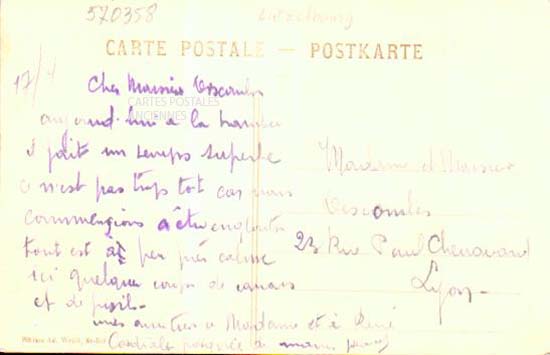 570358
Lutzelbourg
CARTE POSTALE — POSTKARTE
17/4
Cher Monsieur Descombes
CARTES POSTALES
ANCIENNES
aujourd'hui à la
il fait un temps superbe
ce n'est pas trop tot car nous
commencions a être engloutis
tout est à peu près calme
ici quelques coups de canons
et de fusil.
mes amitiés a Madame et à René
Cordiale poignée de main
Madame et Monsieur
Descombes
23 Rue Paul Chenavard
Lyon